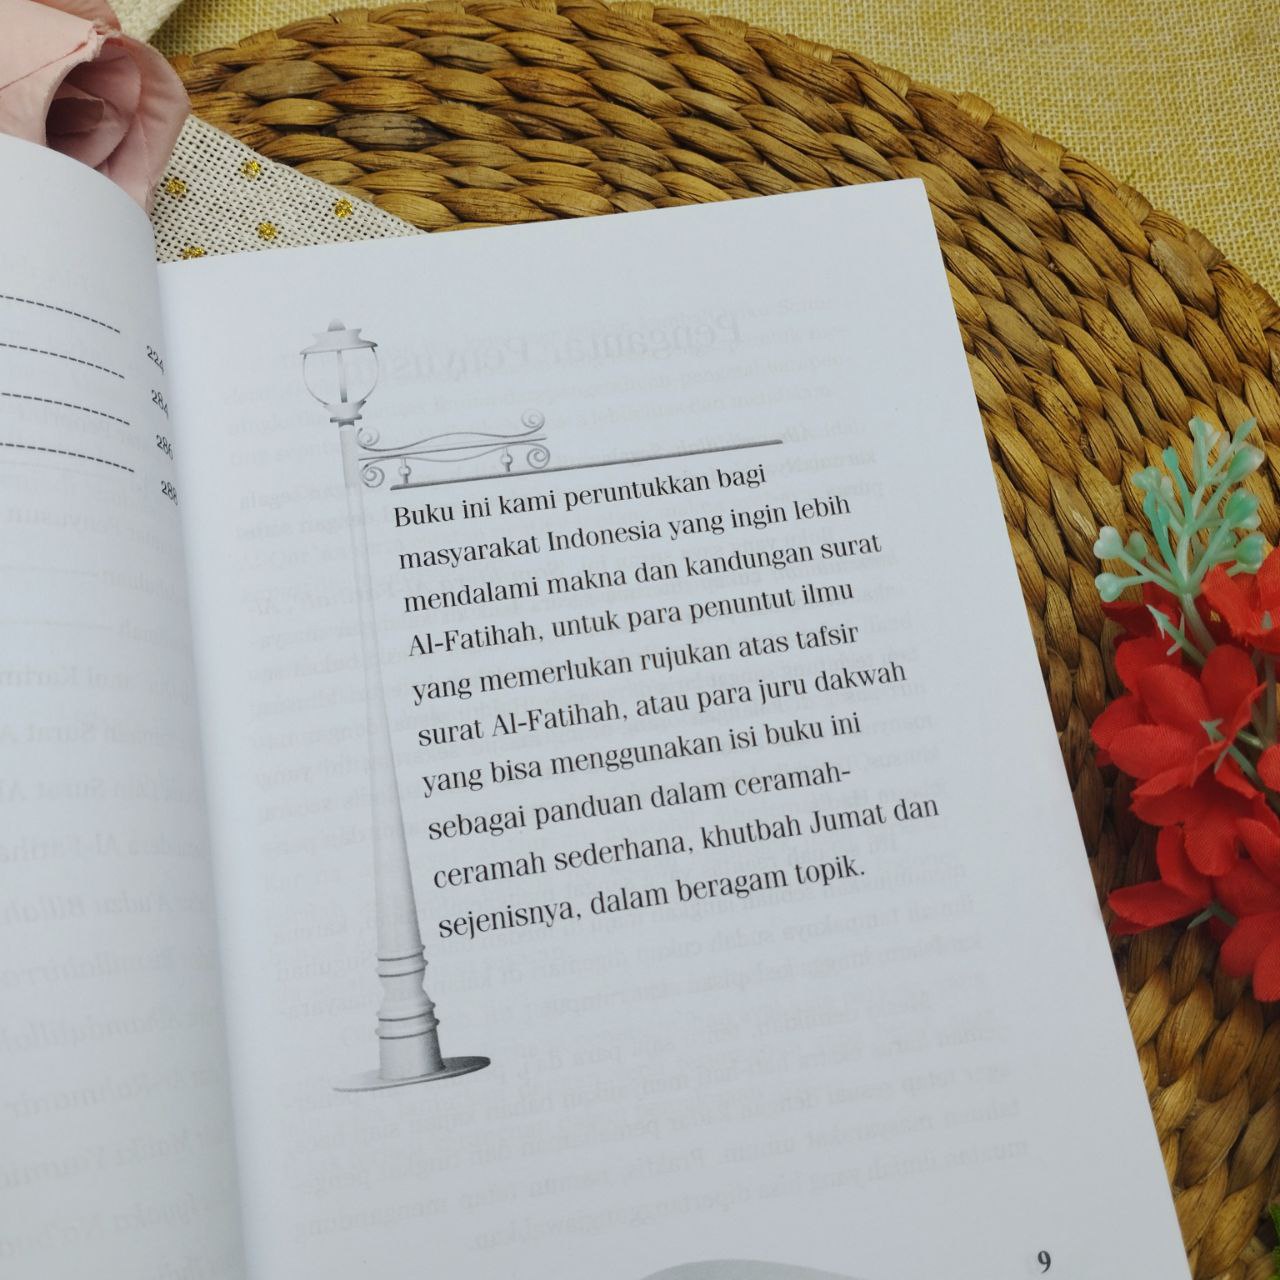 224
284
286
288
Buku ini kami peruntukkan bagi
masyarakat Indonesia yang ingin lebih
mendalami makna dan kandungan surat
Al-Fatihah, untuk para penuntut ilmu
yang memerlukan rujukan atas tafsir
surat Al-Fatihah, atau para juru dakwah
yang bisa menggunakan isi buku ini
sebagai panduan dalam ceramah-
ceramah sederhana, khutbah Jumat dan
sejenisnya, dalam beragam topik.
9